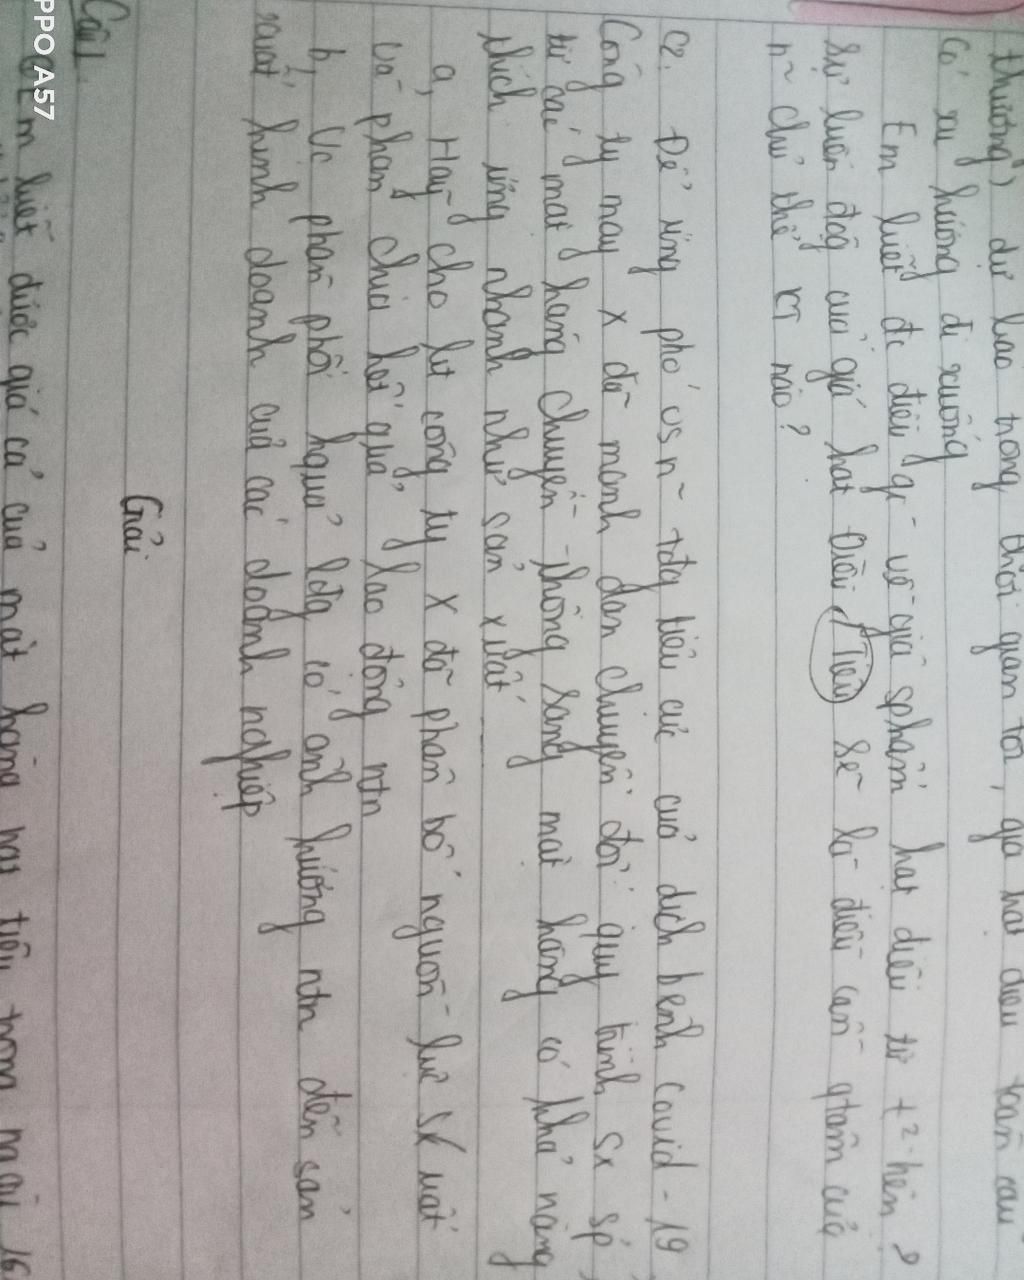 thường) dự báo trong thời gian tới, giá hạt điều toàn cầu
có xu hướng đi xuống
Em biết đc điều gì về giá sphẩm hạt điều từ t² trên ?
Sự luôn động của giá hạt Điều (Tiêu) sẽ là điều cần qtâm của
n~ chủ thể nào?
C2. Để ứng phó vs n~ tđg tiêu cực của dịch bệnh Covid-19
Công ty may X đã mạnh dạn chuyển đổi quy trình sx sp
từ các mặt hàng chuyền thống sang mặt hàng có khả năng
thích ứng nhanh như sản xuất
a, Hãy cho bt công ty X đã phân bổ nguồn lực SX
và phân chia kết quả lao động ntn
b, Vc phân phối kquả lđg có ảnh hưởng ntn đến sản
xuất kinh doanh của các doanh nghiệp
Giải
Câu 1.
Em biết được giá cả của mặt hàng hạt tiêu trong
PPO A57